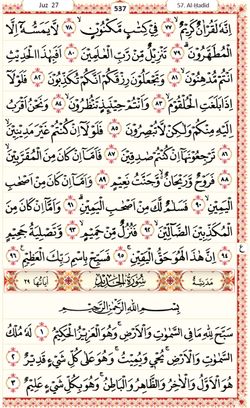 Juz 27
537
57. Al-Hadid
إِنَّهُۥ لَقُرْءَانٌ كَرِيمٌ ٧٧ فِى كِتَٰبٍ مَّكْنُونٍ ٧٨ لَّا يَمَسُّهُۥٓ إِلَّا
ٱلْمُطَهَّرُونَ ٧٩ تَنزِيلٌ مِّن رَّبِّ ٱلْعَٰلَمِينَ ٨٠ أَفَبِهَٰذَا ٱلْحَدِيثِ
أَنتُم مُّدْهِنُونَ ٨١ وَتَجْعَلُونَ رِزْقَكُمْ أَنَّكُمْ تُكَذِّبُونَ ٨٢ فَلَوْلَآ
إِذَا بَلَغَتِ ٱلْحُلْقُومَ ٨٣ وَأَنتُمْ حِينَئِذٍ تَنظُرُونَ ٨٤ وَنَحْنُ أَقْرَبُ
إِلَيْهِ مِنكُمْ وَلَٰكِن لَّا تُبْصِرُونَ ٨٥ فَلَوْلَآ إِن كُنتُمْ غَيْرَ مَدِينِينَ
٨٦ تَرْجِعُونَهَآ إِن كُنتُمْ صَٰدِقِينَ ٨٧ فَأَمَّآ إِن كَانَ مِنَ ٱلْمُقَرَّبِينَ
٨٨ فَرَوْحٌ وَرَيْحَانٌ وَجَنَّتُ نَعِيمٍ ٨٩ وَأَمَّآ إِن كَانَ مِنْ أَصْحَٰبِ
ٱلْيَمِينِ ٩٠ فَسَلَٰمٌ لَّكَ مِنْ أَصْحَٰبِ ٱلْيَمِينِ ٩١ وَأَمَّآ إِن كَانَ مِنَ
ٱلْمُكَذِّبِينَ ٱلضَّآلِّينَ ٩٢ فَنُزُلٌ مِّنْ حَمِيمٍ ٩٣ وَتَصْلِيَةُ جَحِيمٍ
٩٤ إِنَّ هَٰذَا لَهُوَ حَقُّ ٱلْيَقِينِ ٩٥ فَسَبِّحْ بِٱسْمِ رَبِّكَ ٱلْعَظِيمِ ٩٦
مَدَنِيَّة سُورَةُ الحَدِيد آياتها ٢٩
بِسْمِ ٱللَّهِ ٱلرَّحْمَٰنِ ٱلرَّحِيمِ
سَبَّحَ لِلَّهِ مَا فِى ٱلسَّمَٰوَٰتِ وَٱلْأَرْضِ وَهُوَ ٱلْعَزِيزُ ٱلْحَكِيمُ ١ لَهُۥ مُلْكُ
ٱلسَّمَٰوَٰتِ وَٱلْأَرْضِ يُحْىِۦ وَيُمِيتُ وَهُوَ عَلَىٰ كُلِّ شَىْءٍ قَدِيرٌ ٢
هُوَ ٱلْأَوَّلُ وَٱلْءَاخِرُ وَٱلظَّٰهِرُ وَٱلْبَاطِنُ وَهُوَ بِكُلِّ شَىْءٍ عَلِيمٌ ٣